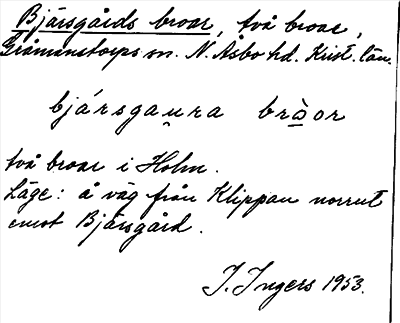 Bjärsgårds broar, två broar,
Gråmanstorps sn. N. Åsbo hd. Krist. län.
bjársgau̯ra brå̀or
två broar i Holm.
Läge: å väg från Klippan norrut
emot Bjärsgård.
I. Ingers 1953.